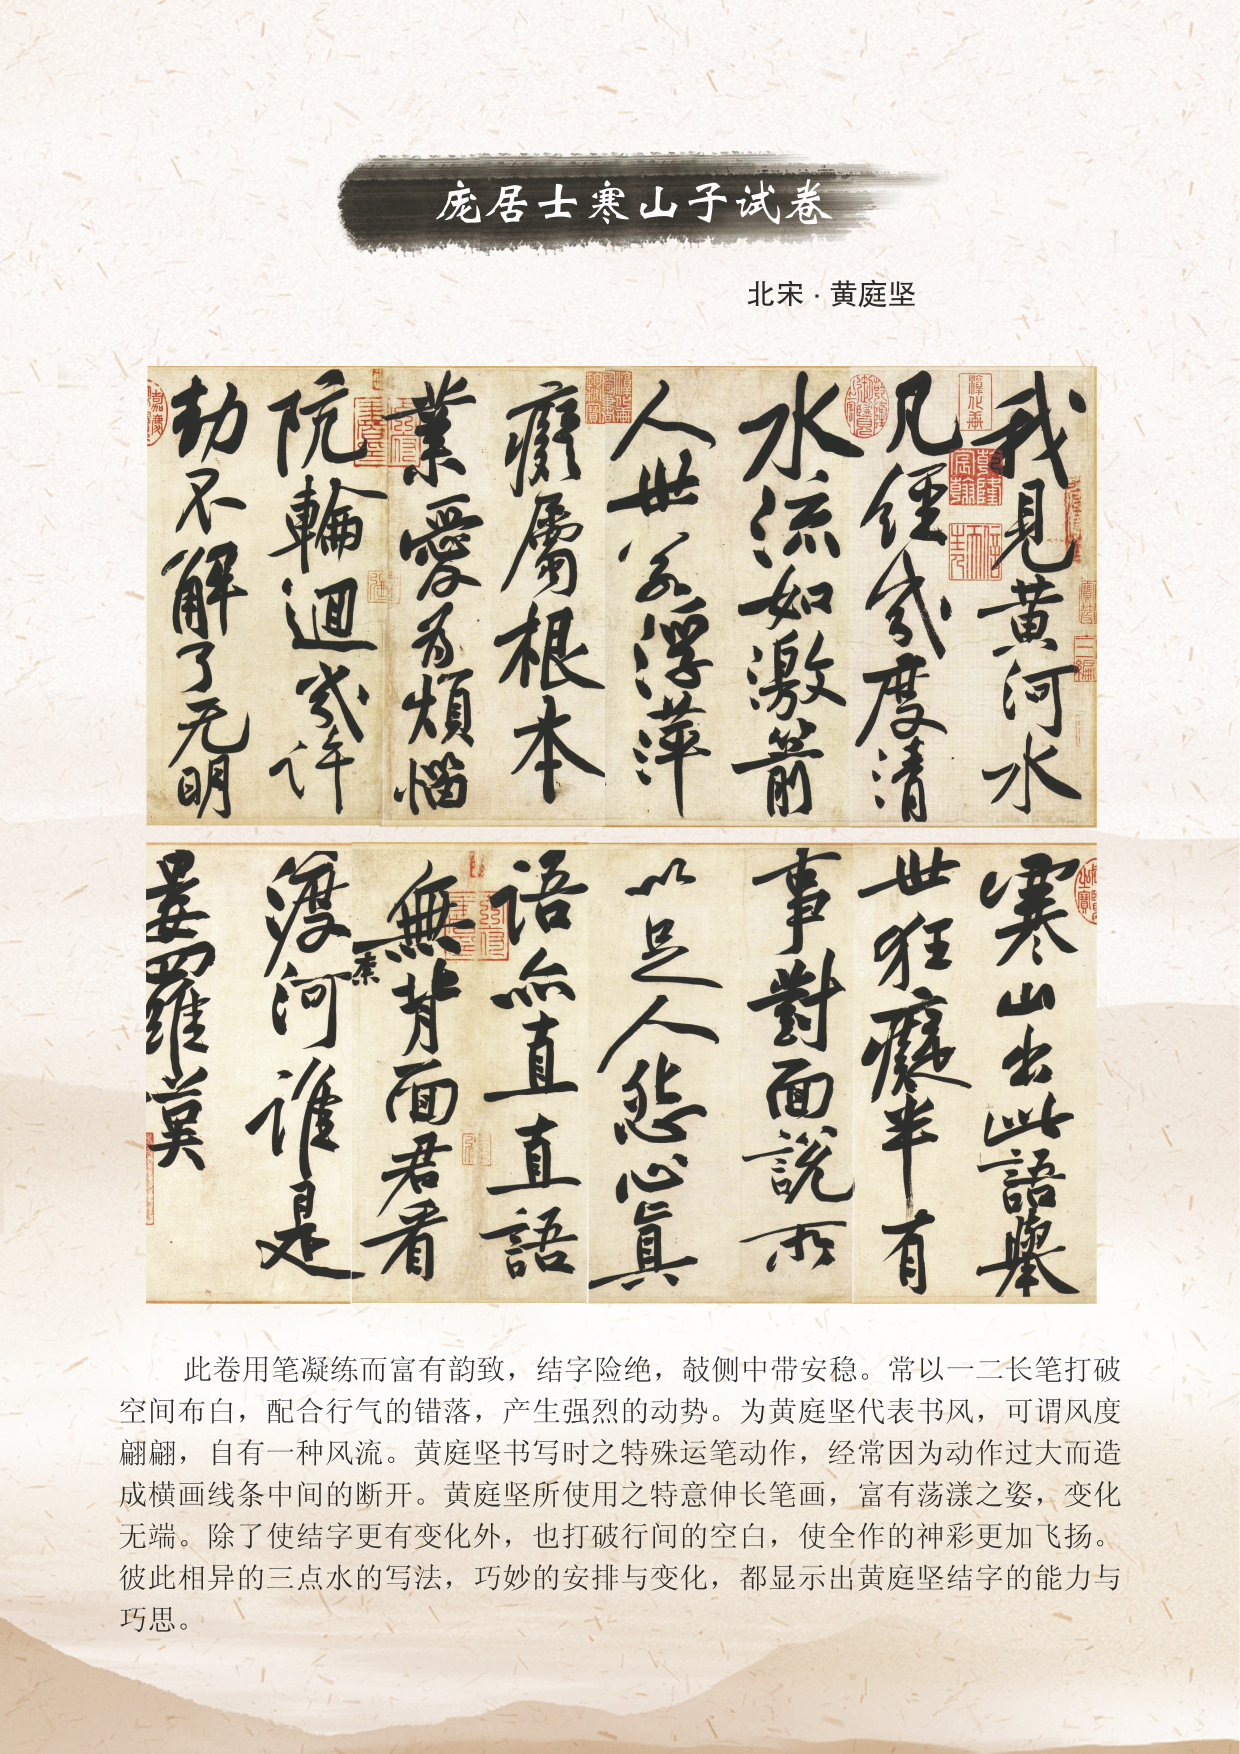 庞居士寒山子试卷
北宋·黄庭坚
我見黄河水
凡經幾度清
水流如激箭
人世若浮萍
癡屬根本
業愛為煩惱
阬輪迴幾許
劫不解了无明
寒山出此語舉
世狂癡半有
事對面説所
以足人怨心真
語亦直直語
無背面君看
渡奈河誰是
婁羅莫
此卷用笔凝练而富有韵致，结字险绝，敧侧中带安稳。常以一二长笔打破
空间布白，配合行气的错落，产生强烈的动势。为黄庭坚代表书风，可谓风度
翩翩，自有一种风流。黄庭坚书写时之特殊运笔动作，经常因为动作过大而造
成横画线条中间的断开。黄庭坚所使用之特意伸长笔画，富有荡漾之姿，变化
无端。除了使结字更有变化外，也打破行间的空白，使全作的神彩更加飞扬。
彼此相异的三点水的写法，巧妙的安排与变化，都显示出黄庭坚结字的能力与
巧思。